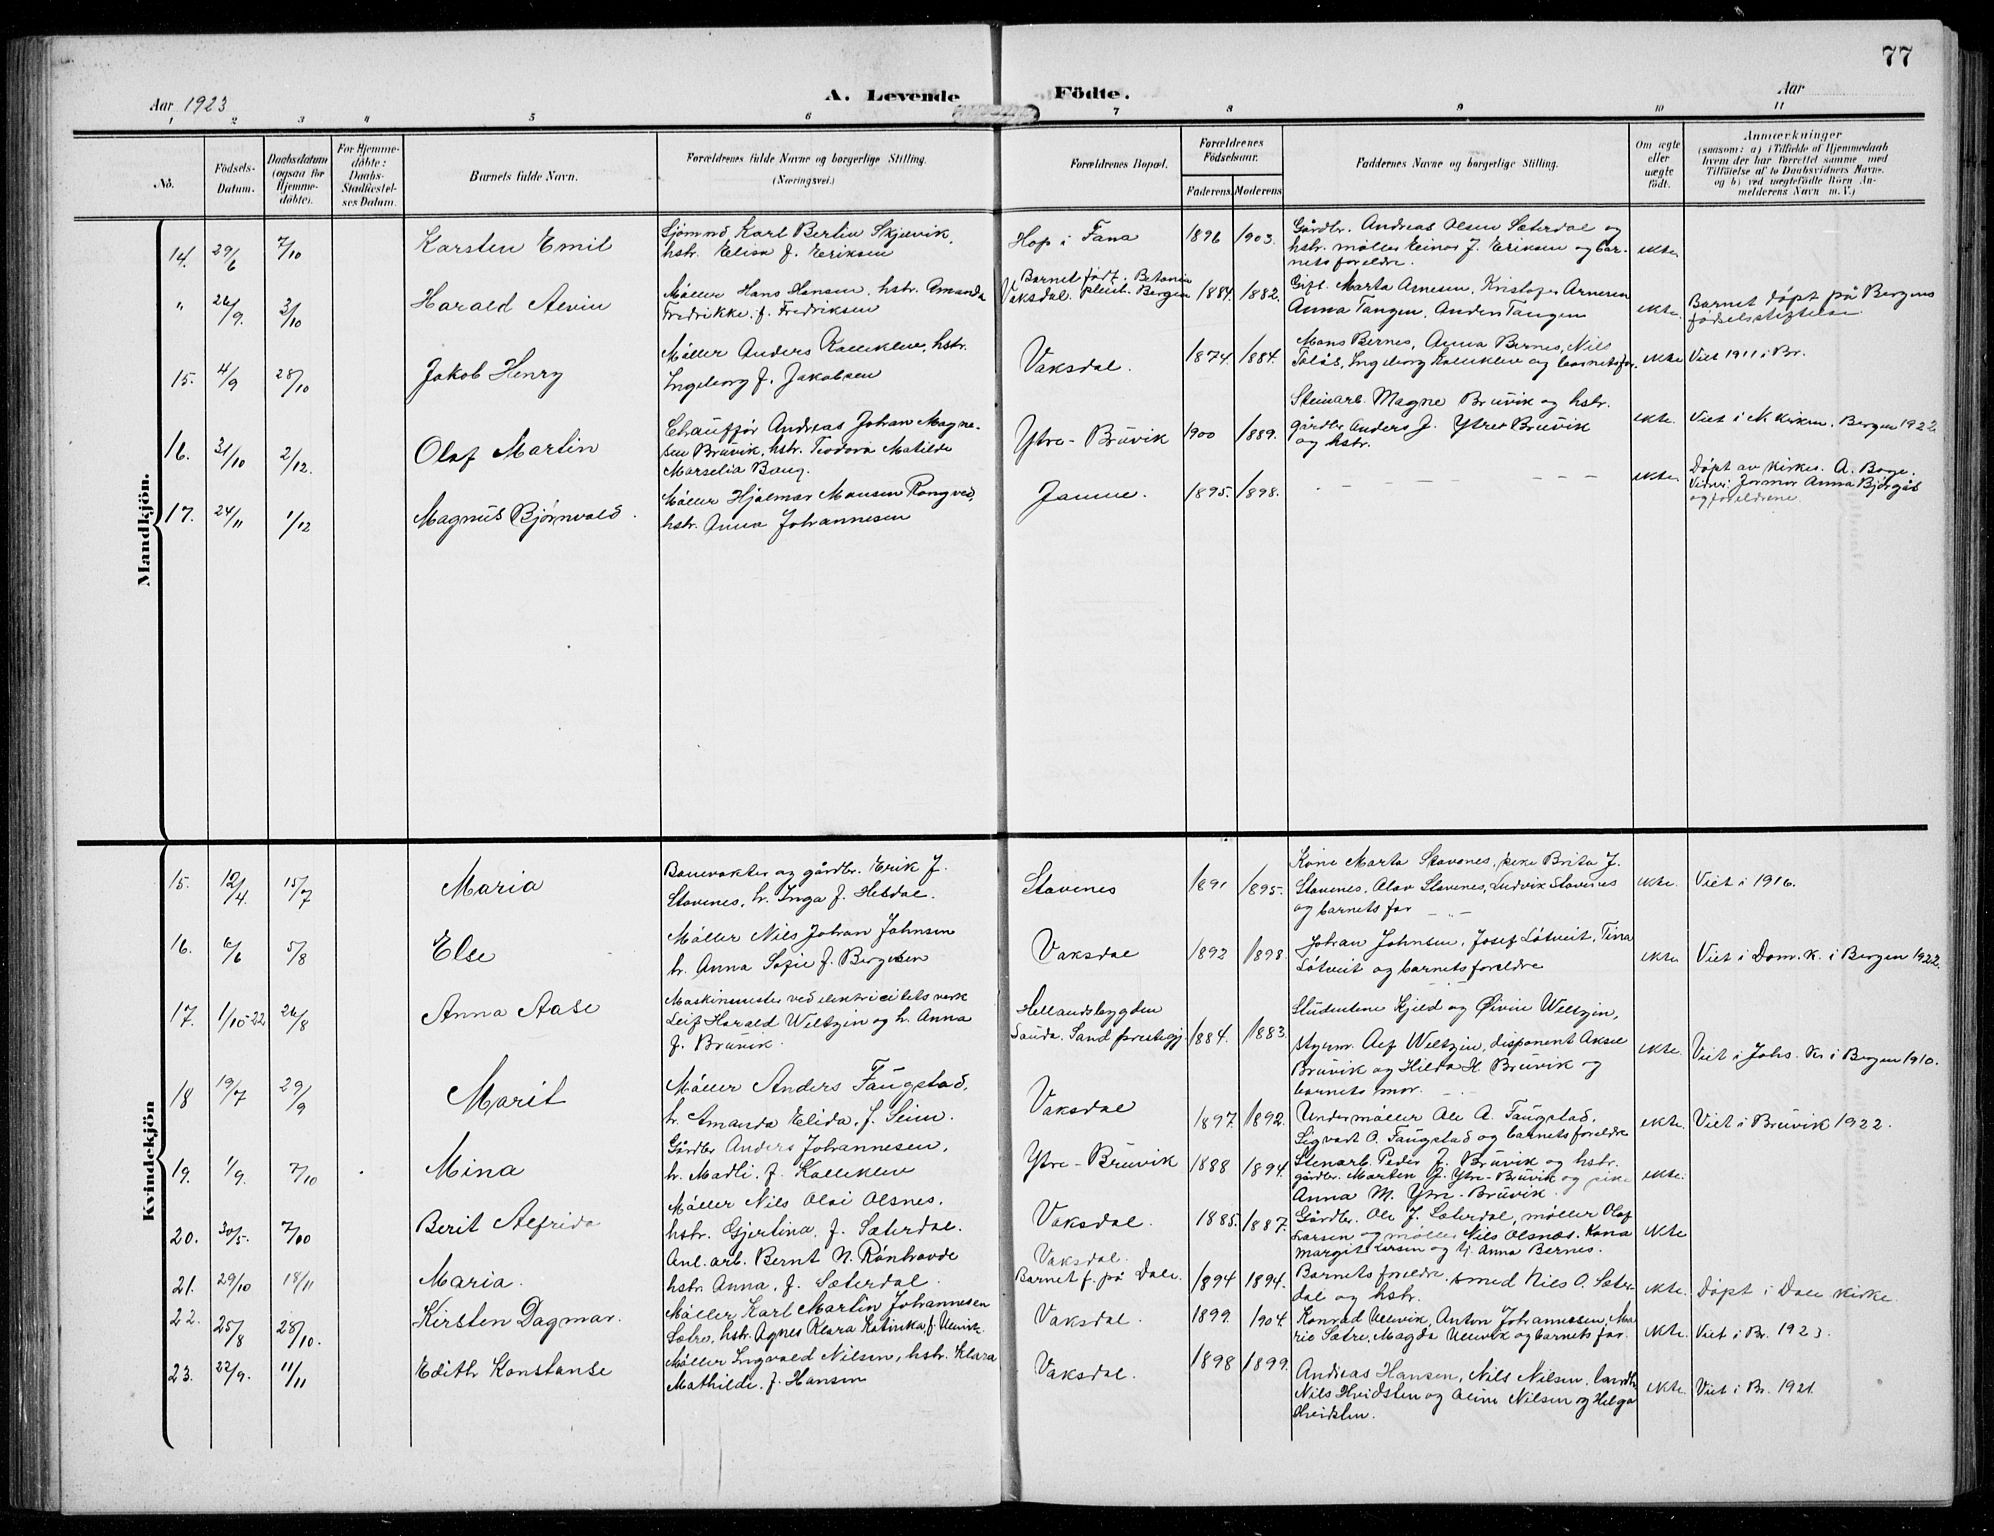 77
Aar 1923
A. Levende Födte.
Aar
1 2 3 4 5 6 7 8 9 10 11
No.
Födsels-Datum.
Daabsdatum (ogsaa for Hjemme-döbte).
For Hjemme-döbte: Daabs-Stadfæstel-ses Datum.
Barnets fulde Navn.
Forældrenes fulde Navne og borgerlige Stilling.
(Næringsvei.)
Forældrenes Bopæl.
Forældrenes Födselsaar.
Faderens. Moderens.
Faddernes Navne og borgerlige Stilling.
Om ægte eller uægte födt.
Anmærkninger
(saasom: a) i Tilfælde af Hjemmedaab
hvem der har forrettet samme, med
Tilföielse af to Daabsvidners Navne,
og b) ved uægtefödte Börn An-
melderens Navn m. V.)
Mandkjön.
14. 29/6 7/10 Karsten Emil
Sjömnd Karl Bertin Skjelvik,
hstr. Elisa f. Eriksen
Hop i Fana 1896 1903.
Gårdbr. Andreas Olsen Sæterdal og
hstr. møller Einar J. Eriksen og bar-
nets foreldre.
ekte.
" 26/9. 3/10 Harald Alvin
Møller Hans Hansen, hstr. Amanda
Fredrikke, f. Fredriksen
Barnet født. Betania
Vaksdal. pleiit. Bergen 1884. 1882.
Gift. Marta Arnesen, Kristofer Arnesen
Anna Tangen, Anders Tangen
ekte.
Barnet døpt på Bergens
fødselsstiftelse.
15. 4/9 28/10 Jakob Henry
Møller Anders Kalleklev, hstr.
Ingeborg f. Jakobsen
Vaksdal. 1874 1884.
Mons Bernes, Anna Bernes, Nils
Toløs, Ingeborg Kalleklev og barnets far.
ekte Viet 1911 i Br.
16. 31/10 2/12. Olaf Martin
Chauffør Andreas Johan Magne-
sen Bruvik, hstr. Teodora Matilde
Marselia Baug.
Ytre-Bruvik 1900 1889.
Steinarb. Magne Bruvik og hstr.
gårdbr. Anders J. Ytre Bruvik
og hstr.
ekte Viet i N. kirken. Bergen 1922.
17. 24/11 1/12 Magnus Bjørnvald.
Møller Hjalmar Monsen Rongved,
hstr. Anna Johannesen
Jamne. 1895. 1898.
ekte.
Døpt av kirkes. A. Boge.
Vidner: Jormor Anna Bjørgås
og foreldrene.
Kvindekjön
15. 12/4. 15/7 Maria
Banevokter og gårdbr. Erik J.
Stavenes, h. Inga f. Hesdal.
Stavenes 1891 1895.
Kone Marta Stavenes, pike Brita J.
Stavenes, Olav Stavenes, Ludvik Stavenes
og barnets far
ekte. Viet i 1916.
16. 6/6 5/8 Else
Møller Nils Johan Johnsen
h. Anna Sofie f. Bergesen
Vaksdal 1892 1898
Johan Johnsen, Josef Løtveit, Tina
Løtveit og barnets foreldre
ekte. Viet i Dom. k. i Bergen 1922.
17. 1/10-22 26/8 Anna Aase
Maskinmester ved elektricitets verk
Leif Harald Weltzin og h. Anna
f. Bruvik.
Hellandsbygden
Sauda. Sand prestegj. 1884. 1883.
Studentene Kjeld og Øivin Weltzin,
styrm. Alf Weltzin, disponent Aksel
Bruvik og Hilda H. Bruvik og
barnets mor.
ekte. Viet i Johs. K. i Bergen 1910.
18 19/7 29/9 Marit
Møller Anders Faugstad,
h. Amanda Elida, f. Seim.
Vaksdal 1897. 1892.
Undermøller Ole A. Faugstad,
Sigvart O. Faugstad og barnets foreldre
ekte. Viet i Bruvik 1922.
19. 1/9. 7/10 Mina
Gårdbr. Anders Johannesen,
h. Madli, f. Kalleklev
Ytre-Bruvik 1888 1894.
Stenarb. Peder J. Bruvik og hstr.
gårdbr. Marten J. Ytre-Bruvik og pike
Anna M. Ytre-Bruvik.
ekte.
20. 30/5. 7/10 Berit Alfrida
Møller Nils Olai Olsnes,
hstr. Gjertina, f. Sæterdal.
Vaksdal. 1885. 1887.
Gårdbr. Ole J. Sæterdal, møller Olaf
Larsen og møller Nils Olsnes. Kona
Margit Larsen og tj. Anna Bernes.
ekte
21. 29/10 18/11 Maria.
Anl. arb. Bernt N. Rønhovde
hstr. Anna, f. Sæterdal.
Vaksdal.
Barnet f. på Dale. 1894 1894.
Barnets foreldre, smed Nils O. Sæter-
dal og hstr.
ekte. Døpt i Dale kirke.
22. 25/8 28/10. Kirsten Dagmar.
Møller Karl Martin Johannesen
Sætre, hstr. Agnes Klara Katinka, f. Ulevik.
Vaksdal. 1899. 1904.
Konrad Ulevik, Anton Johannesen, Ma-
rie Sætre, Magda Ulevik og barnets far.
ekte. Viet i Br. 1923.
23. 22/9. 11/11 Edith Konstanse
Møller Ingvald Nilsen, hstr. Klara
Mathilde. f. Hansen
Vaksdal. 1898 1899.
Andreas Hansen, Nils Nilsen,
Nils Hvidsten og Aline Nilsen og Helga
Hvidsten.
ekte. Viet i Br. 1921.